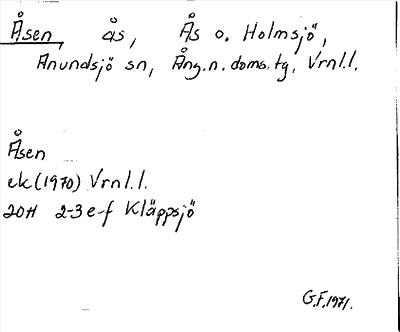 Åsen, ås, Ås o. Holmsjö,
Anundsjö sn, Ång.n.doms.tg, Vrnl.l.
Åsen
ek(1970) Vrnl.l.
20H 2-3 e-f Kläppsjö
G.F.1971.